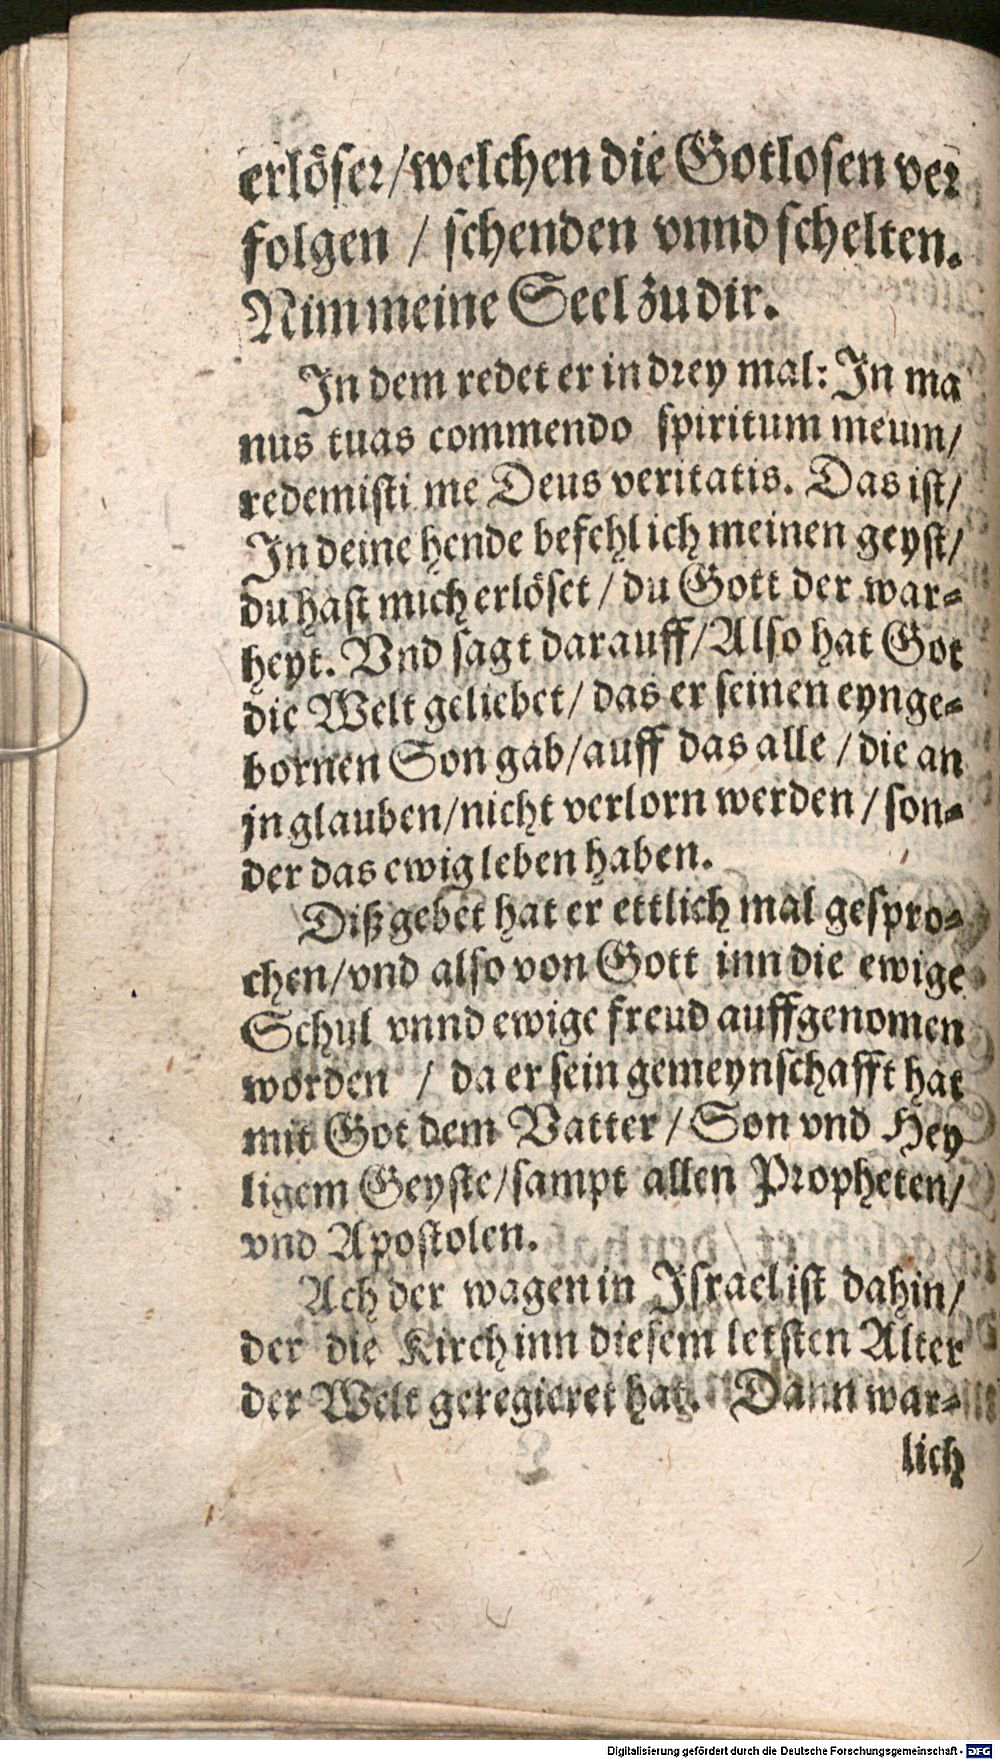 erlöser/welchen die Gotlosen ver
folgen / schenden vnnd schelten.
Nim meine Seel zu dir.
In dem redet er in drey mal: In ma
nus tuas commendo spiritum meum/
redemisti me Deus veritatis. Das ist/
In deine hende befehl ich meinen geyst/
du hast mich erlöset / du Gott der war=
heyt. Vnd sagt darauff/Also hat Got
die Welt geliebet/ das er seinen eynge=
bornen Son gab/auff das alle / die an
jn glauben/nicht verlorn werden / son=
der das ewig leben haben.
Diß gebet hat er ettlich mal gespro=
chen/vnd also von Gott inn die ewige
Schul vnnd ewige freud auffgenomen
worden / da er sein gemeynschafft hat
mit Got dem Vatter / Son vnd Hey
ligem Geyste/sampt allen Propheten/
vnd Apostolen.
Ach der wagen in Israel ist dahin/
der die Kirch inn diesem letsten Alter
der Welt geregieret hat. Dann war=
lich
Digitalisierung gefördert durch die Deutsche Forschungsgemeinschaft - DFG